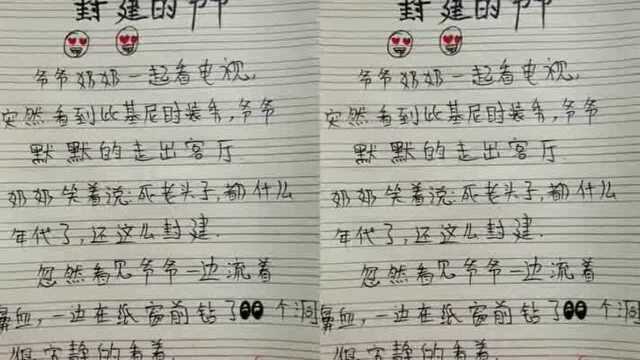 封建的爷爷 封建的爷爷
爷爷奶奶一起看电视, 爷爷奶奶一起看电视,
突然看到比基尼时装秀,爷爷 突然看到比基尼时装秀,爷爷
默默的走出客厅 默默的走出客厅
奶奶笑着说:死老头子,都什么 奶奶笑着说:死老头子,都什么
年代了,还这么封建. 年代了,还这么封建.
忽然看见爷爷一边流着 忽然看见爷爷一边流着
鼻血,一边在纸窗前钻了 个洞 鼻血,一边在纸窗前钻了 个洞
很安静的看着. 很安静的看着.